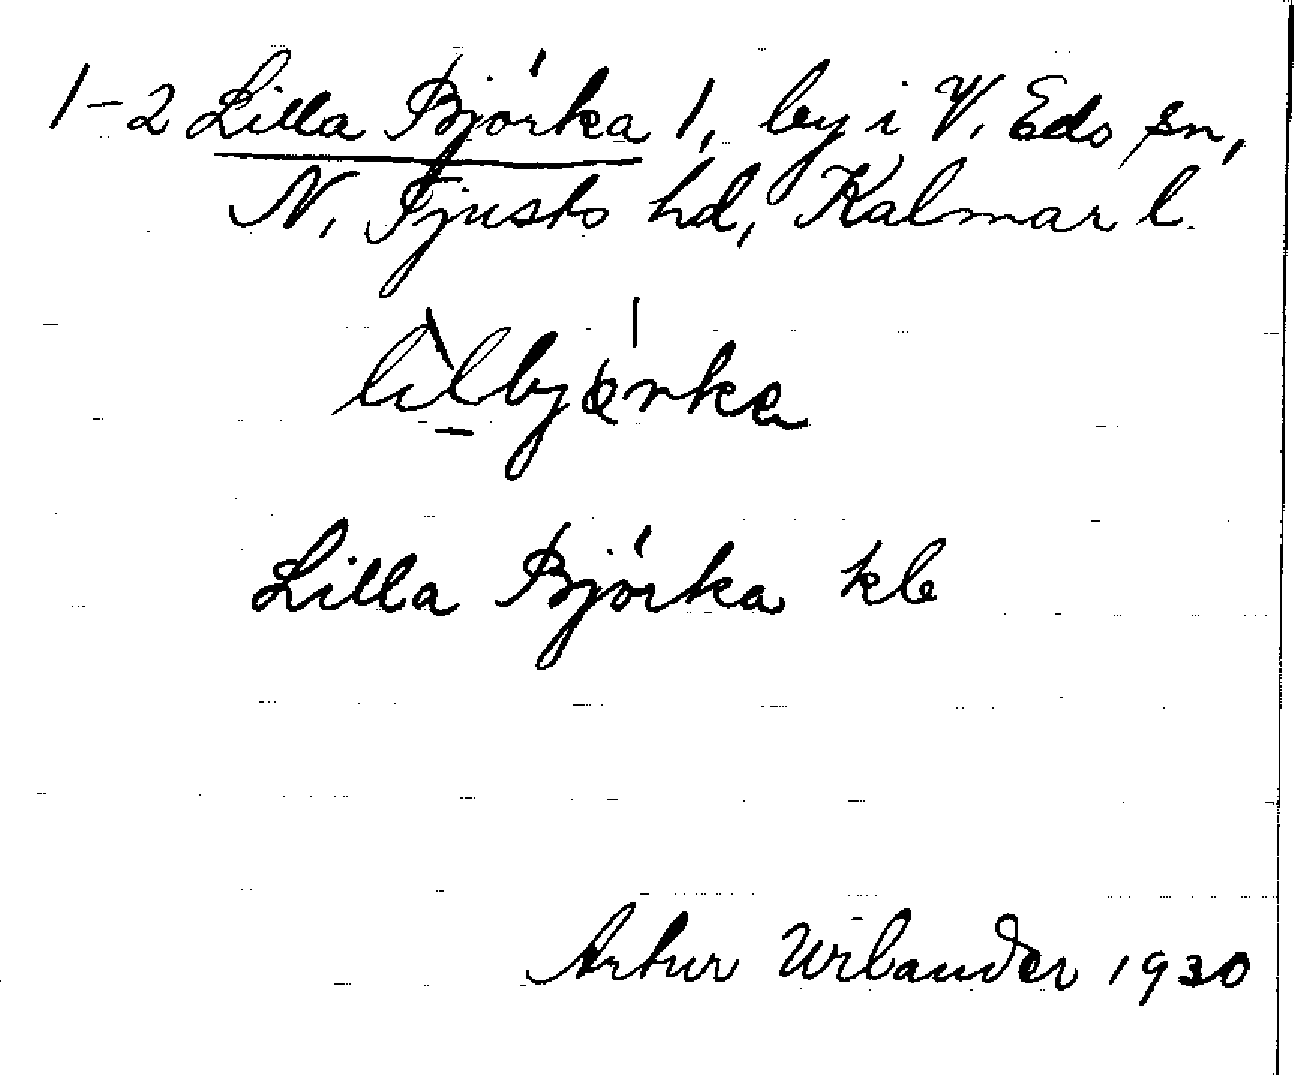 1-2 Lilla Björka 1, by i V. Eds sn,
N. Tjusts hd, Kalmar l.
Lilla Björka kb
Artur Wilander 1930